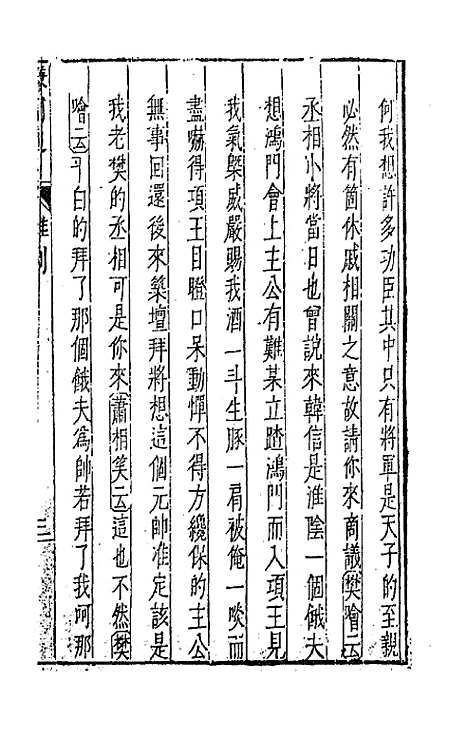 何我想許多功臣其中只有將軍是天子的至親
必然有箇休戚相關之意故請你來商議樊噲云
丞相小將當日也曾說來韓信是淮陰一個餓夫
想鴻門會上主公有難某立踏鴻門而入項王見
我氣槩威嚴賜我酒一斗生豚一肩被俺一啖而
盡嚇得項王目瞪口呆動憚不得方纔保的主公
無事回還後來築壇拜將想這個元帥准定該是
我老樊的丞相可是你來蕭相笑云這也不然樊
噲云平白的拜了那個餓夫為帥若拜了我呵那